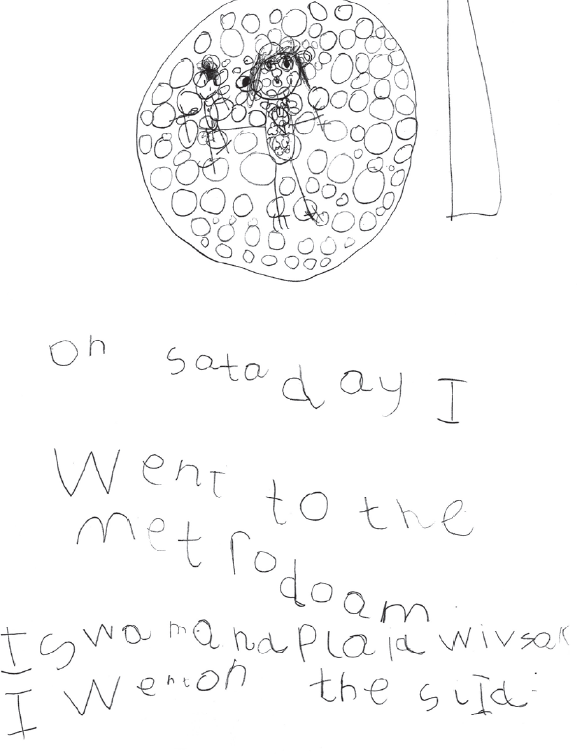 on sataday I
Went to the
metrodoam.
I swamandplaid wivsak
I Wenton the slId.